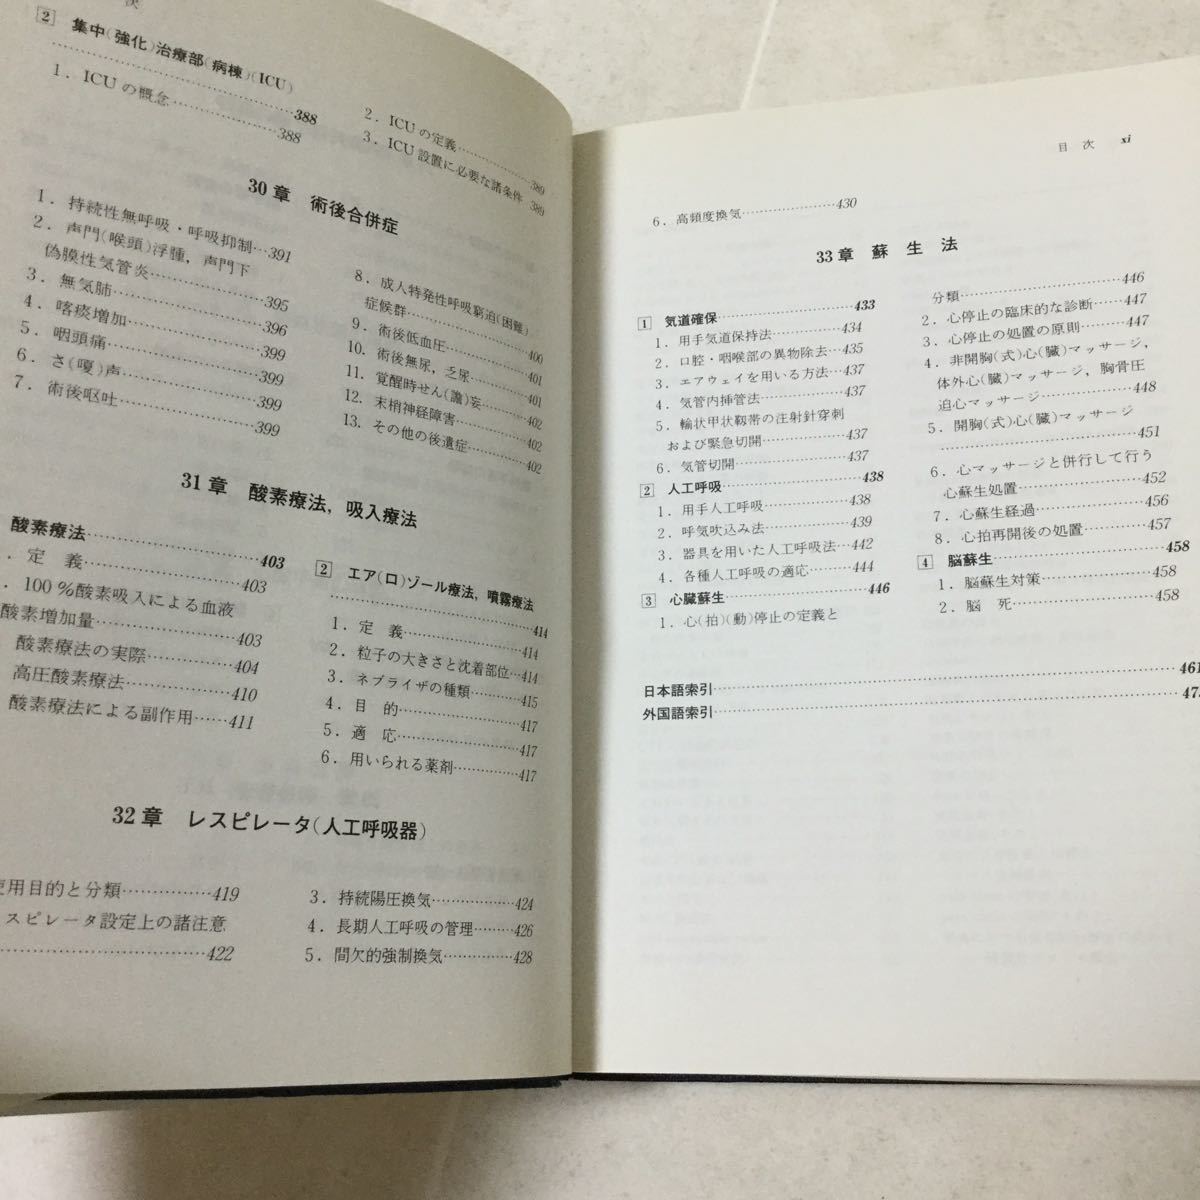 次
2 集中(強化)治療部(病棟)(ICU)
……………………388
1. ICUの概念…………388
2. ICUの定義…………389
3. ICU設置に必要な諸条件 389
30章 術後合併症
1. 持続性無呼吸・呼吸抑制…391
2. 声門(喉頭)浮腫，声門下
偽膜性気管炎…………395
3. 無気肺…………396
4. 喀痰増加…………399
5. 咽頭痛…………399
6. さ(嗄)声…………399
7. 術後嘔吐…………399
8. 成人特発性呼吸窮迫(困難)
症候群…………400
9. 術後低血圧…………401
10. 術後無尿，乏尿…………401
11. 覚醒時せん(譫)妄…………402
12. 末梢神経障害…………402
13. その他の後遺症…………402
31章 酸素療法，吸入療法
酸素療法…………403
. 定 義…………403
. 100％酸素吸入による血液
酸素増加量…………403
酸素療法の実際…………404
高圧酸素療法…………410
酸素療法による副作用……411
2 エア(ロ)ゾール療法，噴霧療法
……………………414
1. 定 義…………414
2. 粒子の大きさと沈着部位…414
3. ネブライザの種類…………415
4. 目 的…………417
5. 適 応…………417
6. 用いられる薬剤…………417
32章 レスピレータ(人工呼吸器)
使用目的と分類…………419
スピレータ設定上の諸注意
……………………422
3. 持続陽圧換気…………424
4. 長期人工呼吸の管理………426
5. 間欠的強制換気…………428
目 次 xi
6. 高頻度換気…………430
33章 蘇生法
1 気道確保…………433
1. 用手気道保持法…………434
2. 口腔・咽喉部の異物除去…435
3. エアウェイを用いる方法…437
4. 気管内挿管法…………437
5. 輪状甲状靱帯の注射針穿刺
および緊急切開…………437
6. 気管切開…………437
2 人工呼吸…………438
1. 用手人工呼吸…………438
2. 呼気吹込み法…………439
3. 器具を用いた人工呼吸法…442
4. 各種人工呼吸の適応………444
3 心臓蘇生…………446
1. 心(拍)(動)停止の定義と
分類…………446
2. 心停止の臨床的な診断……447
3. 心停止の処置の原則………447
4. 非開胸(式)心(臓)マッサージ，
体外心(臓)マッサージ，胸骨圧
迫心マッサージ…………448
5. 開胸(式)心(臓)マッサージ
……………………451
6. 心マッサージと併行して行う
心蘇生処置…………452
7. 心蘇生経過…………456
8. 心拍再開後の処置…………457
4 脳蘇生…………458
1. 脳蘇生対策…………458
2. 脳 死…………458
日本語索引……………………461
外国語索引……………………47